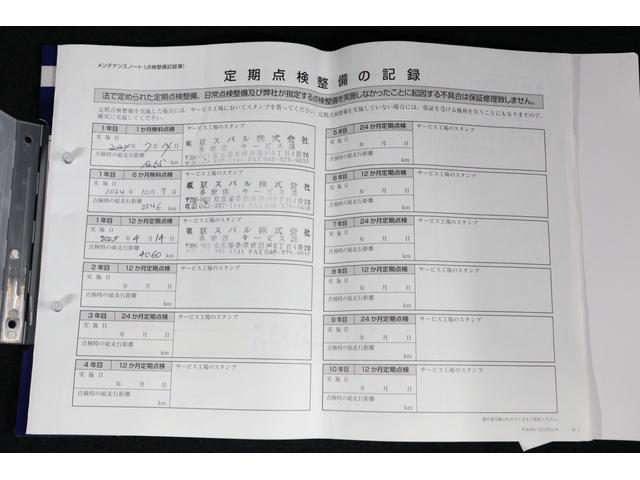 メンテナンスノート(点検整備記録簿)
定期点検整備の記録
法で定められた定期点検整備、日常点検整備及び弊社が指定する点検整備を実施しなかったことに起因する不具合は保証修理致しません。
定期点検整備を実施した場合には、サービス工場においてスタンプを貰ってください。定期点検整備を実施していない場合には、保証を受ける権利を失うことにもなりますので、
確実に実施してください。
1年目 1か月無料点検 サービス工場のスタンプ
実施日
年 7月 日
点検時の総走行距離
km
東京スバル株式会社
多摩店 サービス課
1年目 6か月無料点検 サービス工場のスタンプ
実施日
2024年 10月 7日
点検時の総走行距離
2246 km
東京スバル株式会社
多摩店 サービス課
1年目 12か月定期点検 サービス工場のスタンプ
実施日
2025年 4月 14日
点検時の総走行距離
4060 km
東京スバル株式会社
多摩店 サービス課
2年目 12か月定期点検 サービス工場のスタンプ
実施日
年 月 日
点検時の総走行距離
km
3年目 24か月定期点検 サービス工場のスタンプ
実施日
年 月 日
点検時の総走行距離
km
4年目 12か月定期点検 サービス工場のスタンプ
実施日
年 月 日
点検時の総走行距離
km
5年目 24か月定期点検 サービス工場のスタンプ
実施日
年 月 日
点検時の総走行距離
km
6年目 12か月定期点検 サービス工場のスタンプ
実施日
年 月 日
点検時の総走行距離
km
7年目 24か月定期点検 サービス工場のスタンプ
実施日
年 月 日
点検時の総走行距離
km
8年目 12か月定期点検 サービス工場のスタンプ
実施日
年 月 日
点検時の総走行距離
km
9年目 24か月定期点検 サービス工場のスタンプ
実施日
年 月 日
点検時の総走行距離
km
10年目 12か月定期点検 サービス工場のスタンプ
実施日
年 月 日
点検時の総走行距離
km